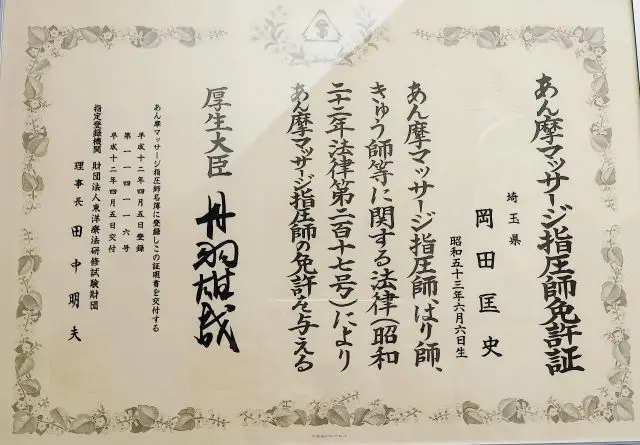 あん摩マッサージ指圧師免許証
埼玉県
岡田匡史
昭和五十三年六月六日生
あん摩マッサージ指圧師、はり師、
きゅう師等に関する法律(昭和
二十二年法律第二百十七号)により
あん摩マッサージ指圧師の免許を与える
厚生大臣 丹羽雄哉
あん摩マッサージ指圧師名簿に登録しこの証明書を交付する
平成十二年四月五日登録
第一一四一一六号
平成十二年四月五日交付
指定登録機関 財団法人東洋療法研修試験財団
理事長 田中明夫